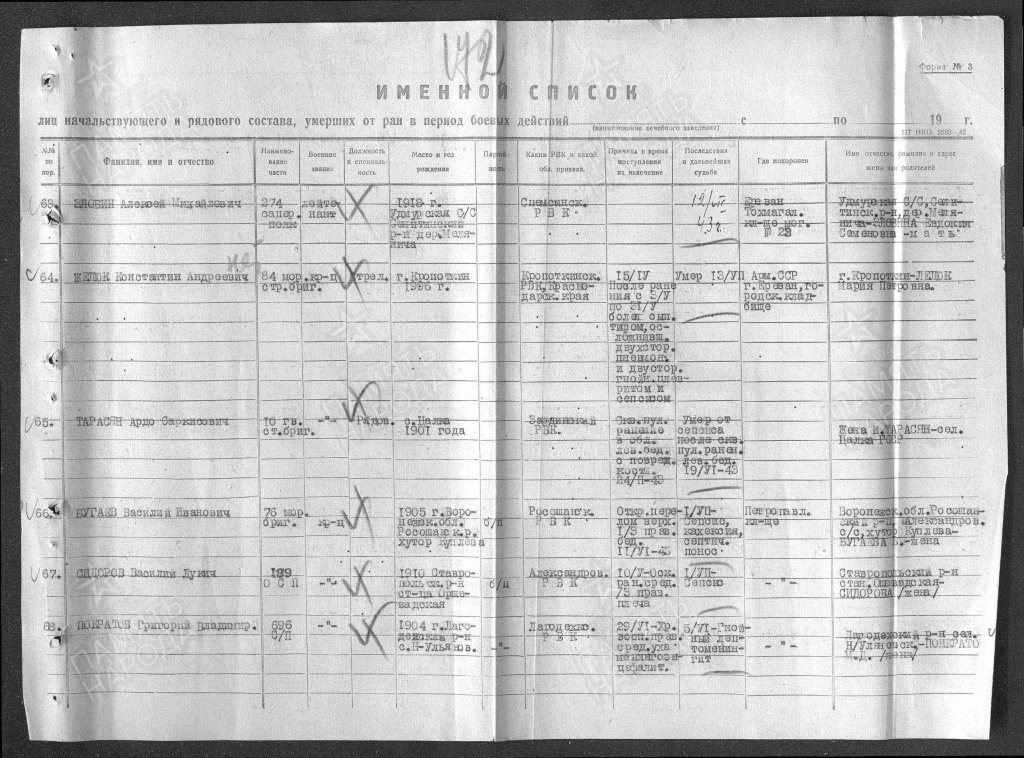 192
Форма № 3
ИМЕННОЙ СПИСОК
лиц начальствующего и рядового состава, умерших от ран в период боевых действий с по 19 г.
(наименования лечебного заведения)
№№ по пор.
Фамилия, имя и отчество
Наимено-
вание
части
Военное
звание
Должность
и специаль-
ность
Место и год
рождения
Партий-
ность
Каким РВК и какой
обл. призван.
Причина и время
поступления
на излечение
Последствия
и дальнейшая
судьба
Где похоронен
Имя отчество, фамилия и адрес
жены или родителей
63.
ЗЛОБИН Алексей Михайлович
274
сапер.
полк
лейте-
нант
1912 г.
Удмурская С/С
р-н дер.Меля-
нича
РВК
43г.
Ереван
Тохмагал.
кл-ще мог.
№ 23
Удмурская С/С, Сели-
тинск.р-н,дер.Меля-
Семеновна -мать
64.
ЖЕЛОК Константин Андреевич
84 мор.
стр.бриг.
кр-ц
стрел.
г.Кропоткин
1996 г.
Кропоткинск.
РВК,Красно-
дарск.края
15/IУ
После ране
ния с 3/У
по 31/У
болел сып.
тифом,ос-
ложнивш.
двухстор.
пневмон.
и двустор.
гнойн.плев-
ритом и
сепсисом
Умер 13/УП
Арм.ССР
г.Ереван,го-
родск.клад-
бище
г.Кропоткин-ЛЕЛОК
Мария Петровна.
65.
ТАРАСЯН Ардо Саркисович
10 гв.
ст.бриг.
-"-
Рядов.
с.Цалка
1901 года
РВК.
Скв.пул.
ранение
в обл.
лев.бед.
с повред.
кости.
24/П-43
Умер от
сепсиса
после скв.
пул.ранен.
лев.бед.
19/УI-43
Жена И.ТАРАСЯН-сел.
Цалка ГССР
66.
БУГАЕВ Василий Иванович
76 мор.
бриг.
кр-ц
1905 г.Воро-
нежск.обл.
Росошанск.р.
хутор Куплева
б/п
Росошанск.
РВК
Откр.пере-
лом верх.
I/3 прав.
бед.
II/УI-43
I/УП-
Сепсис,
кахексия,
септич.
понос
Петропавл.
кл-ще
Воронежск.обл.Росошан-
ский р-н, Александров.
с/с,хутор Куплева-
БУГАЕВА В.-жена
67.
СИДОРОВ Василий Лукич
139
ОСП
-"-
1910 Ставро-
польск.р-н
б/п
Александров.
РВК
10/У-Оск.
ран.сред.
/3 прав.
плеча
I/УП-
Сепсис
-"-
Ставропольский р-н
СИДОРОВА /жена/
68.
ПОНКРАТОВ Григорий Владимир.
696
С/П
-"-
1904 г.Лаго-
дейский р-н
с.Н-Ульянов.
-"-
Лагодехс.
РВК
29/УI-Хр.
восп.прав.
сред.уха
менингоэн-
цефалит.
5/УI-Гной-
ный леп-
томенин-
гит
-"-
Лагодехский р-н сел.
Н/Уляновск.-ПОНКРАТО
М.Д. /жена/